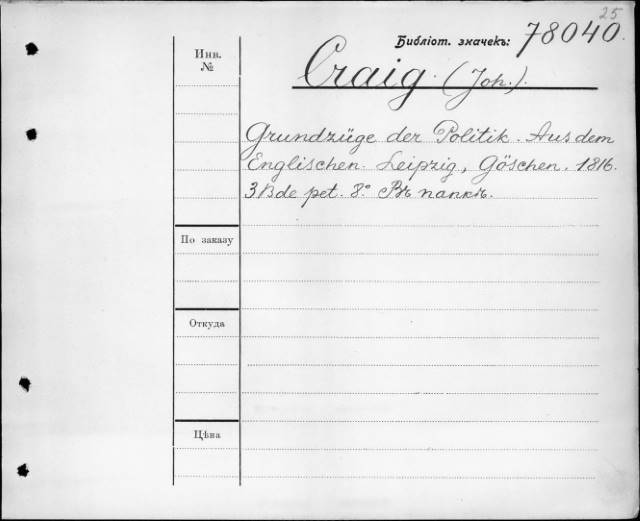 25
Библіот. значекъ: 78040.
Инв.
№
Craig. (Joh.).
Grundzüge der Politik. Aus dem
Englischen. Leipzig, Göschen. 1816.
3 Bde pet. 8.° Въ папкѣ.
По заказу
Откуда
Цѣна